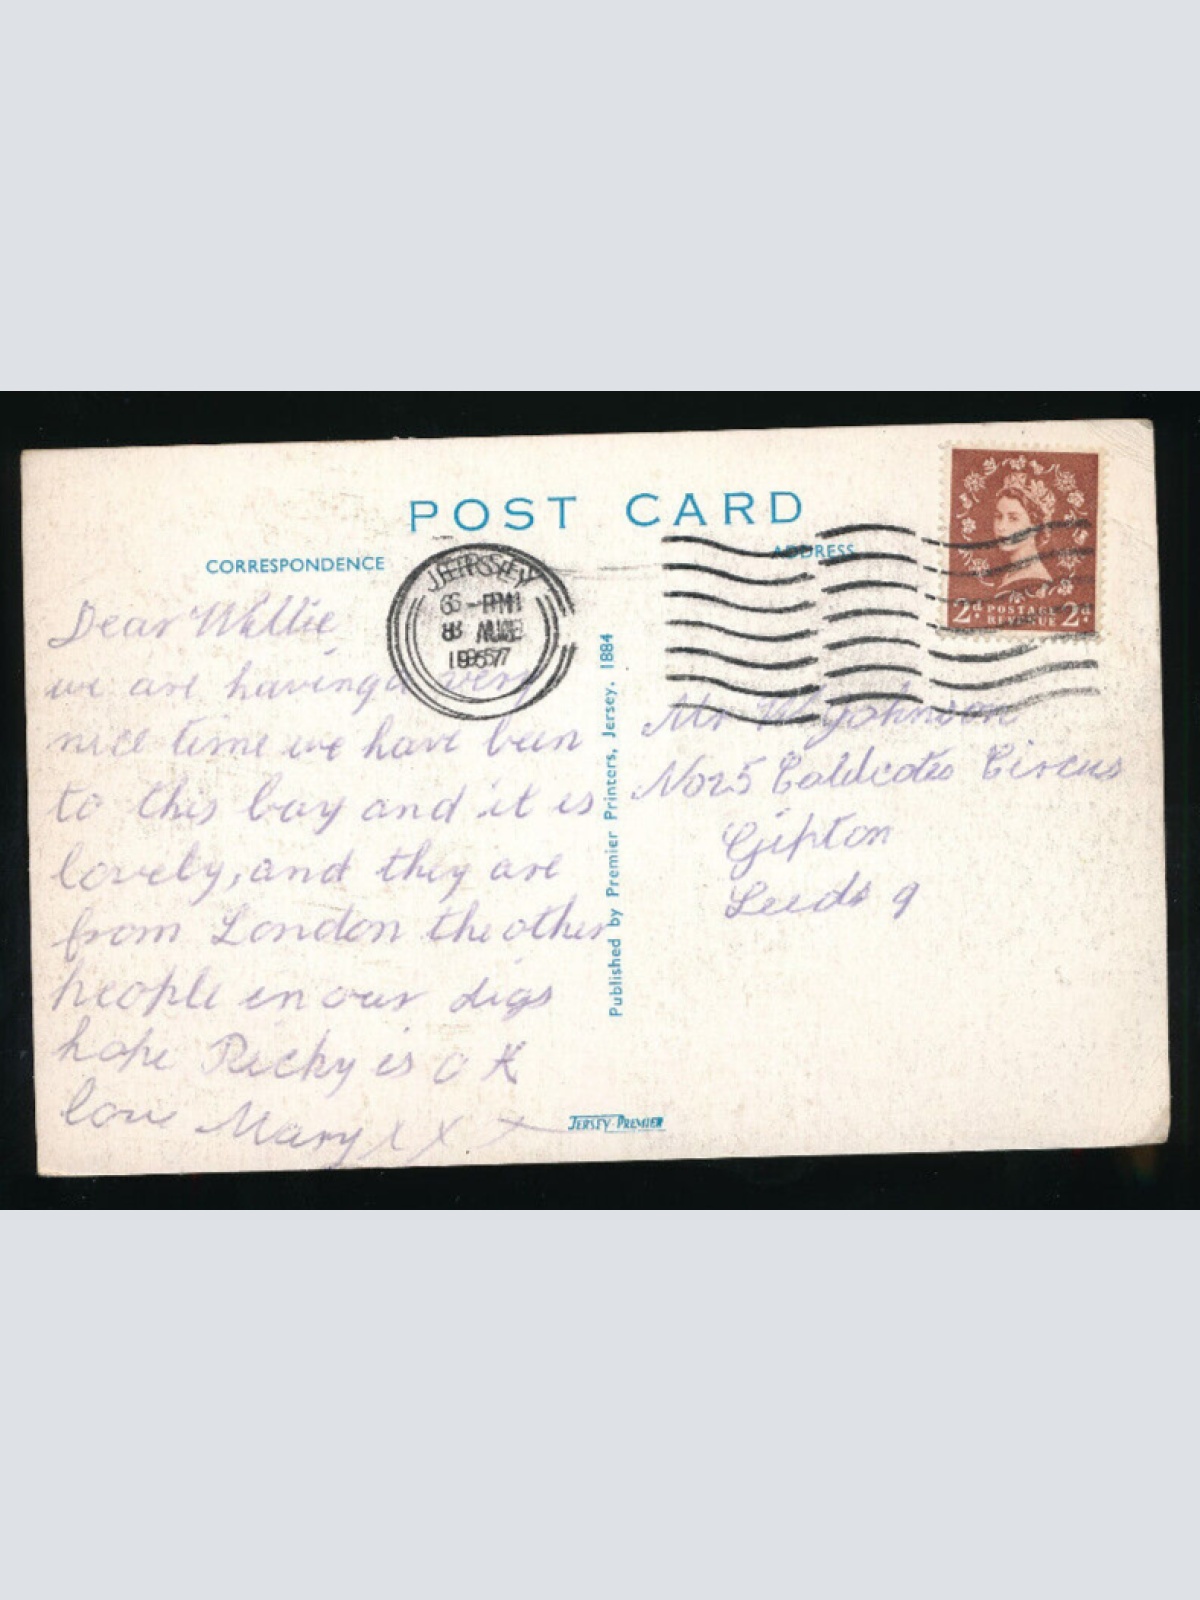 POST CARD
CORRESPONDENCE
ADDRESS
JERSEY
6 - PM
8 AUG
1957
2d POSTAGE REVENUE 2d
Dear Wallie
we are having a very
nice time we have been
to this bay and it is
lovely, and they are
from London the other
people in our digs
hope Ricky is O K
love Mary X X X
Published by Premier Printers, Jersey. 1884
Mr W Johnson
No 25 Coldcotes Circus
Gipton
Leeds 9
JERSEY-PREMIER